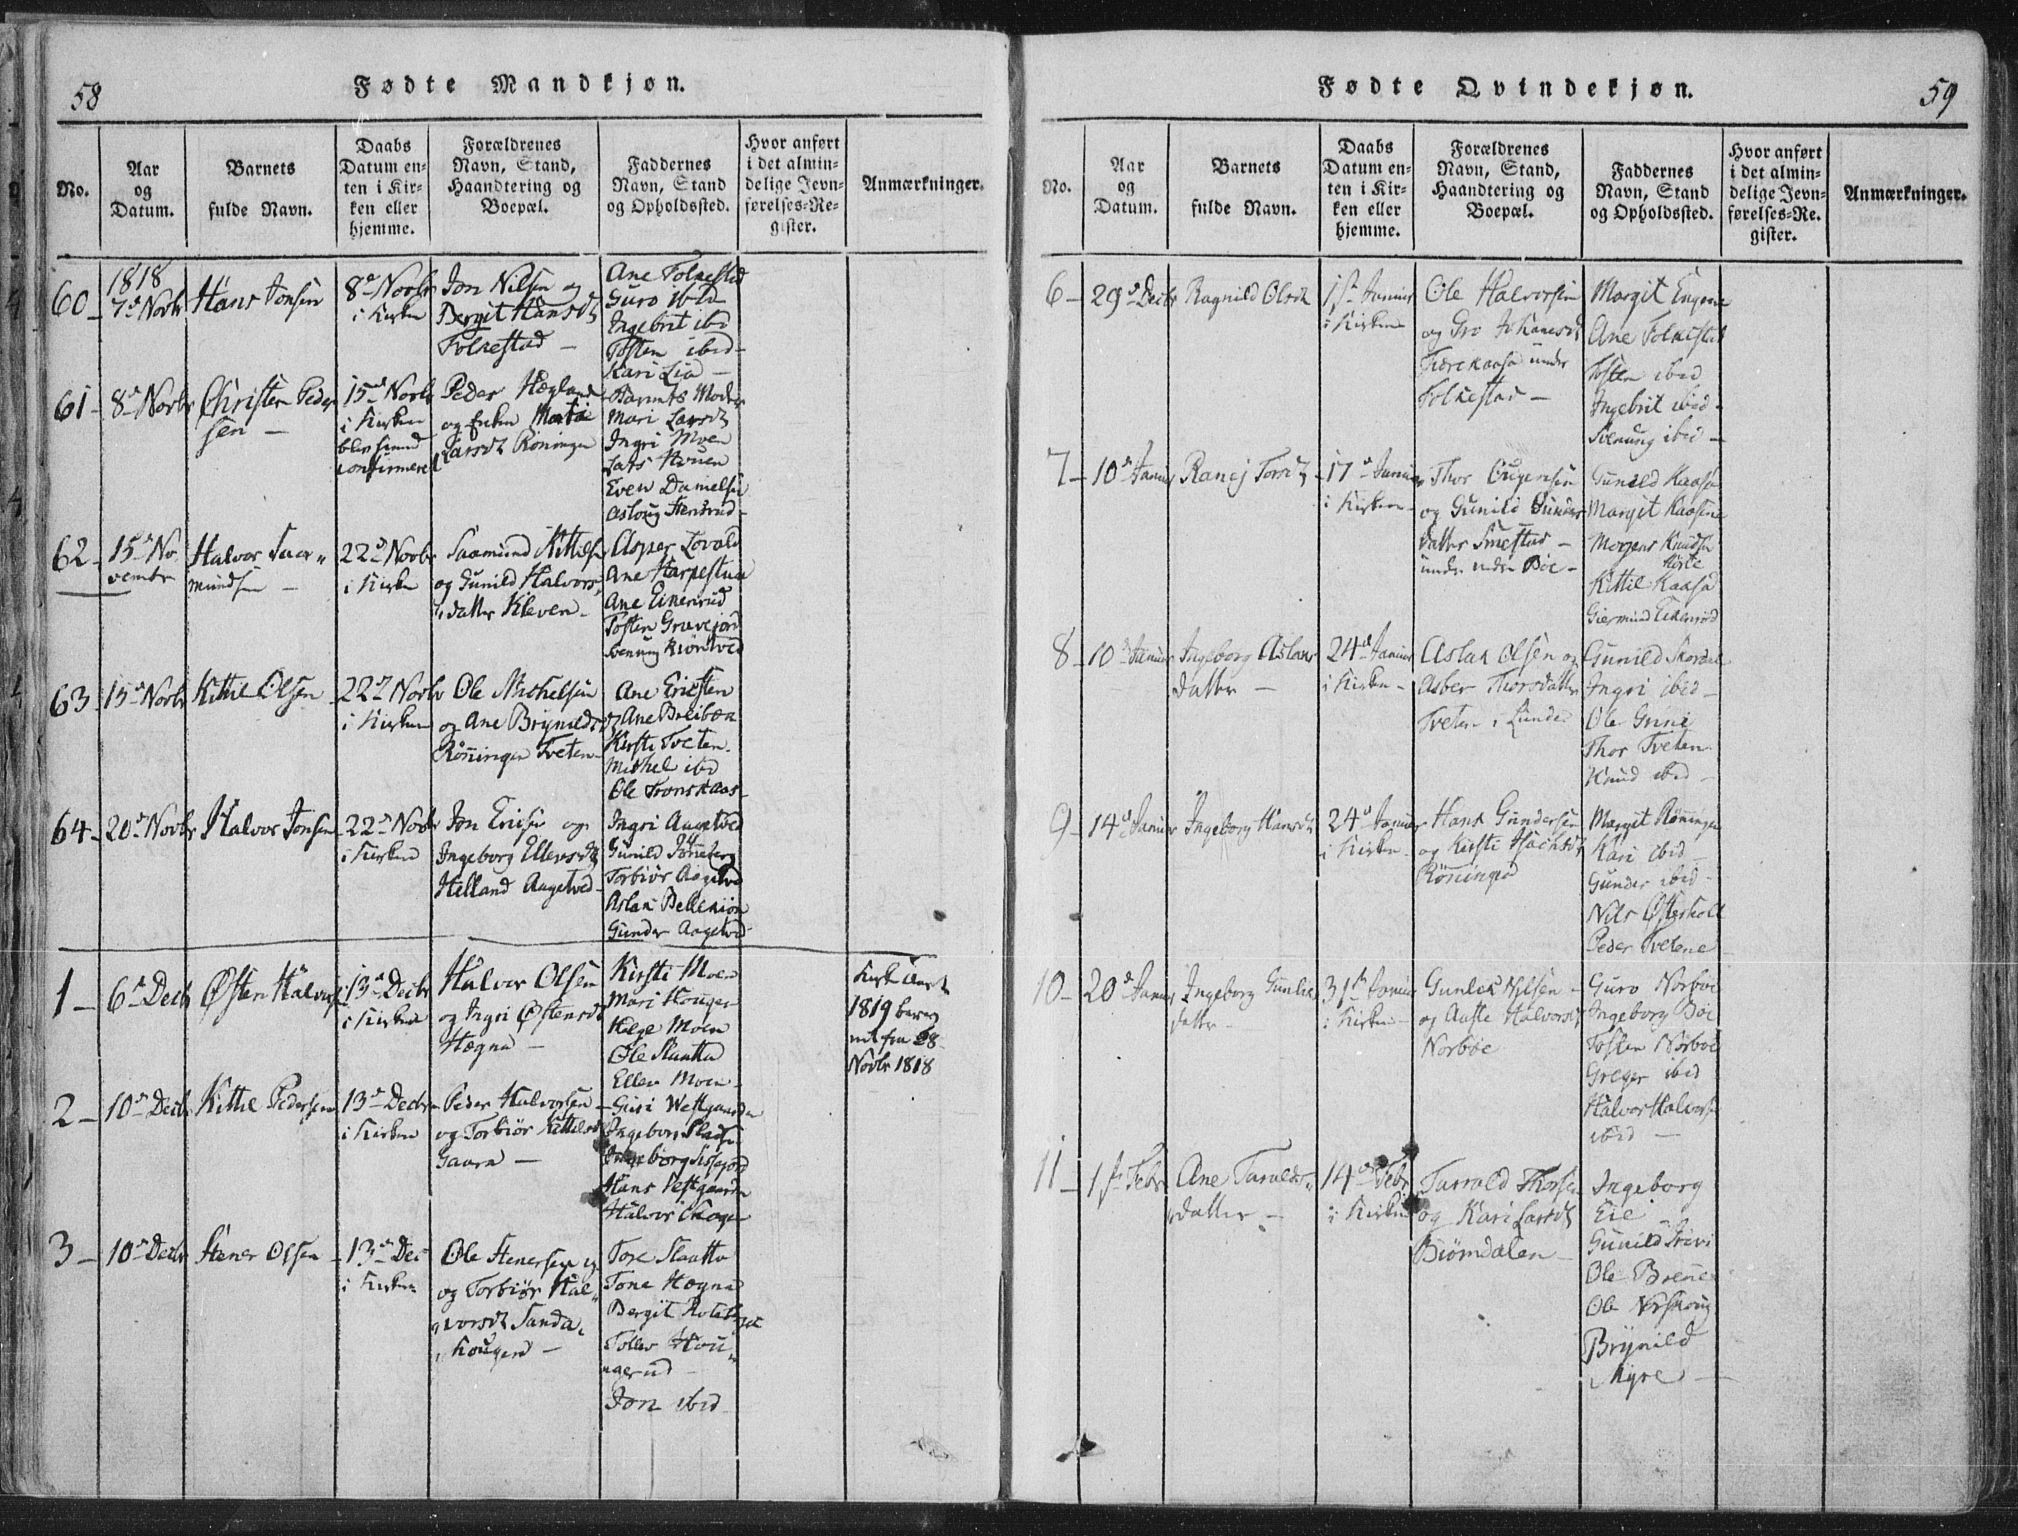 58
Fødte Mandkjøn.
No.
Aar
og
Datum.
Barnets
fulde Navn.
Daabs
Datum en-
ten i Kir-
ken eller
hjemme.
Forældrenes
Navn, Stand,
Haandtering og
Boepæl.
Faddernes
Navn, Stand
og Opholdssted.
Hvor anført
i det almin-
delige Jevn-
førelses-Re-
gister.
Anmærkninger.
60
1818
7de Novbr
Hans Jonsen
8de Novbr
i Kirken
Jon Nilsen og
Bergit Hansdt
Folkestad
Ane Folkestad
Guro ibid
Ingebrit ibd
Tosten ibid
Kari Lia
61
8de Novbr
Christen Peder
sen
15de Novbr
i Kirken
confirmeret
Peder Hægland
og
Larsdt Röningen
Barnets Moder
Mari Larsdt
Ingri Moen
Lars
Even Danielsen
Asloug
62
15de No
vembr
Halvor Saa
mundsen
22de Novbr
i Kirken
Saamund Kittelsen
og Gunild Halvors
datter Kleven
Asper Lovald
Ane Harpestua
Ane Einerud
Tosten Gravejord
Svenung
63
15de Novbr
Kittil Olsen
22de Novbr
i Kirken
Ole Michelsen
og Ane Brynildsdt
Röningen Tveten
Ane Ericsten
Ane Breibæk
Kirsti Tveten
Michel ibd
Ole Tronskaas
64
20de Novbr
Halvor Jonsen
22de Novbr
i Kirken
Jon Ericsen og
Ingeborg Ellevsdt
Helland Aagetved
Ingri Aagetved
Gunild
Torbiör Aagetved
Aslak
Gunder Aagetved
1
6te Decbr
Østen Halvors
13de Decbr
i Kirken
Halvor Olsen
og Ingri Østensdt
Hægna
Kirsti Moen
Mari Hougen
Hæge Moen
Ole Slaatta
Ellev Moen
Kirke Aaret
1819 bereg
net fra 28
Novbr 1818
2
10de Decbr
Kittil Pedersen
13de Decbr
i Kirken
Peder Halvorsen
og Torbiör Kittilsdt
Gaara
Guri Westgaarden
Ingeborg
Ingeborg
Hans Vestgaarden
Halvor
3
10de Decbr
Stener Olsen
13de Dec
i Kirken
Ole Stenersen
og Torbiör Hal
vorsdt Sanda
Hougerud
Tore Slaatta
Tone Hægna
Bergit
Tollev Hou
gerud
Jon ibid
Fødte Qvindekjøn.
59
No.
Aar
og
Datum.
Barnets
fulde Navn.
Daabs
Datum en-
ten i Kir-
ken eller
hjemme.
Forældrenes
Navn, Stand,
Haandtering og
Boepæl.
Faddernes
Navn, Stand
og Opholdssted.
Hvor anført
i det almin-
delige Jevn-
førelses-Re-
gister.
Anmærkninger.
6
29de Decbr
Ragnild Olsdt
1ste Januar
i Kirken
Ole Halvorsen
og Gro
under
Folkestad
Margit Engene
Ane Folkestad
Tosten ibid
Ingebrit ibid
Svenung ibid
7
10de Januar
Ranej Torsdt
17de Januar
i Kirken
Thor
og Gunild Gunder
datter Smestad
under
Gunild Kaasa
Margit Kaasene
Mogens Knudsen
Kittil Kaasa
Giermund
8
10de Januar
Ingeborg Aslaks
datter
24de Januar
i Kirken
Aslak Olsen og
Asber Thorsdatter
Tveten i Lunde
Gunild Skordal
Ingri ibid
Ole Grini
Thor Tveten
Knud ibid
9
14de Januar
Ingeborg Hansdt
24de Januar
i Kirken
Hans Gundersen
og Kirsti
Röningen
Margit Röningen
Kari ibid
Gunder ibid
Nils Østerholt
Peder Tvetene
10
20de Januar
Ingeborg Gunleks
datter
31te Januar
i Kirken
Gunlek Nilsen
og Aaste Halvorsdt
Norböe
Guro Norböe
Ingeborg Böe
Tosten Norböe
Greger ibid
Halvor Halvorsen
ibid
11
1ste Febr
Ane Taralds
datter
14de Febr
i Kirken
Tarrald Thorsen
og Kari Larsdt
Biörndalen
Ingeborg
Eie
Gunild
Ole
Ole
Brynild
Myre